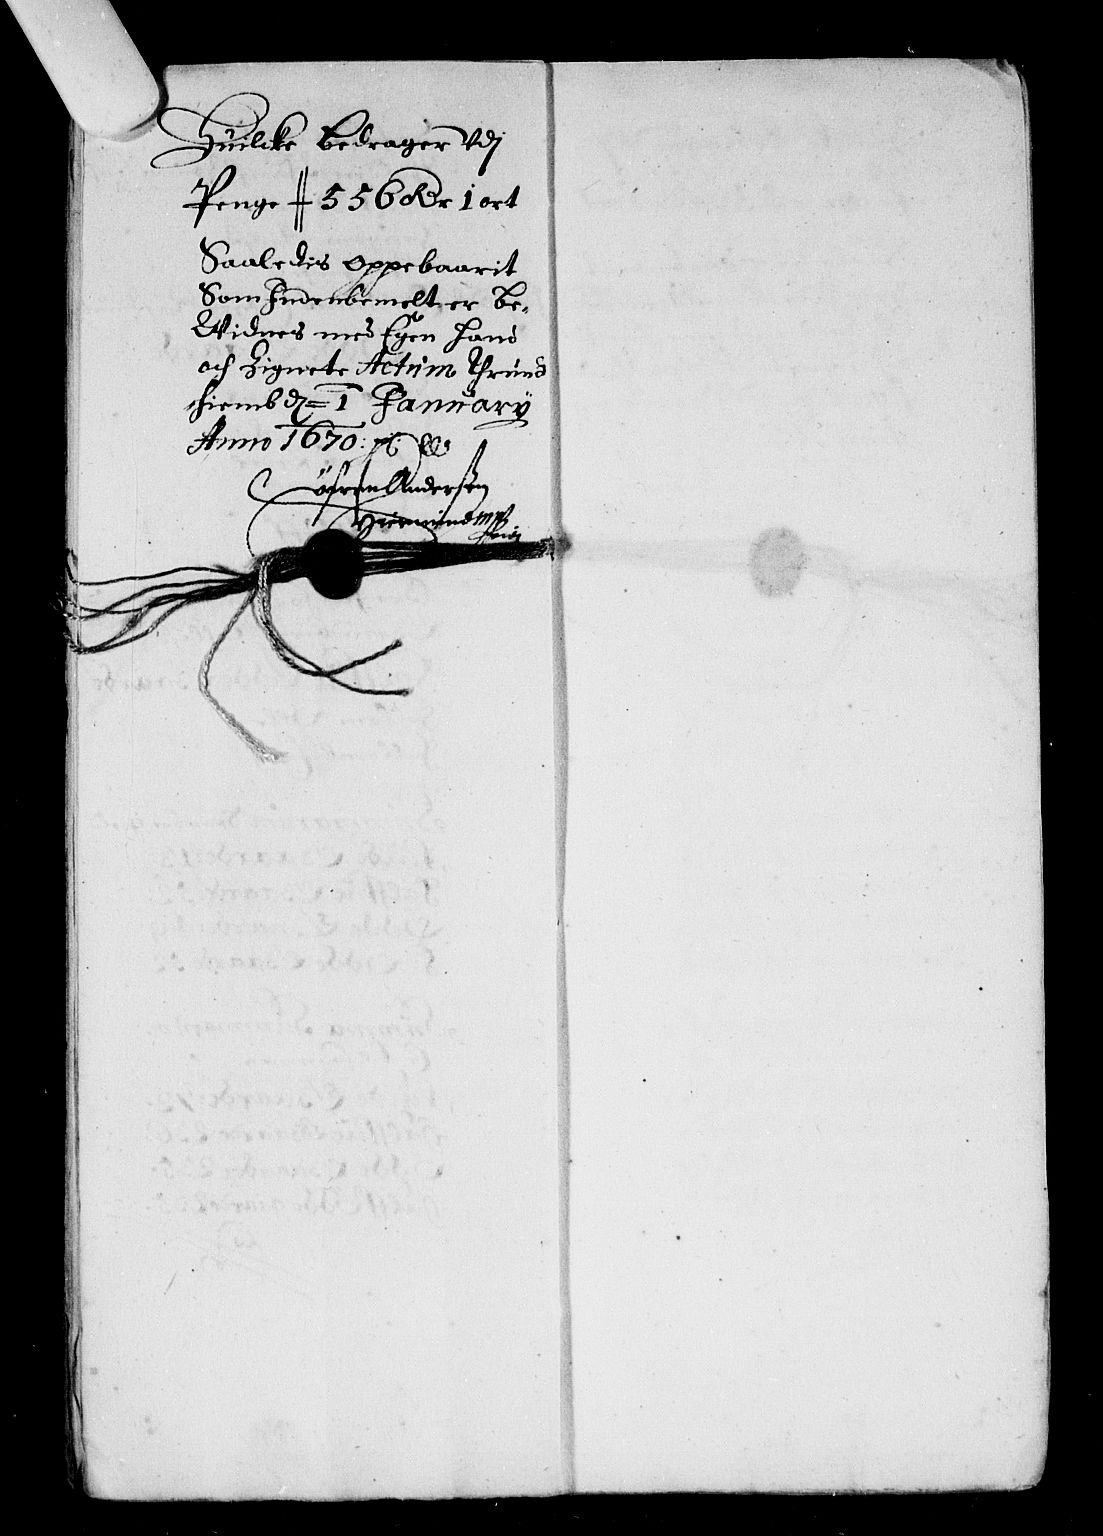 Huilcke bedrager Udj
Penge ╫ 556 Rdr 1 ort
Saaledis oppebaarit
Som Indenbemelt er be-
Widnes med Egen hand
och Zignete Actum Thrund
hiemb d: 1 January
Anno 1670:
Andersen